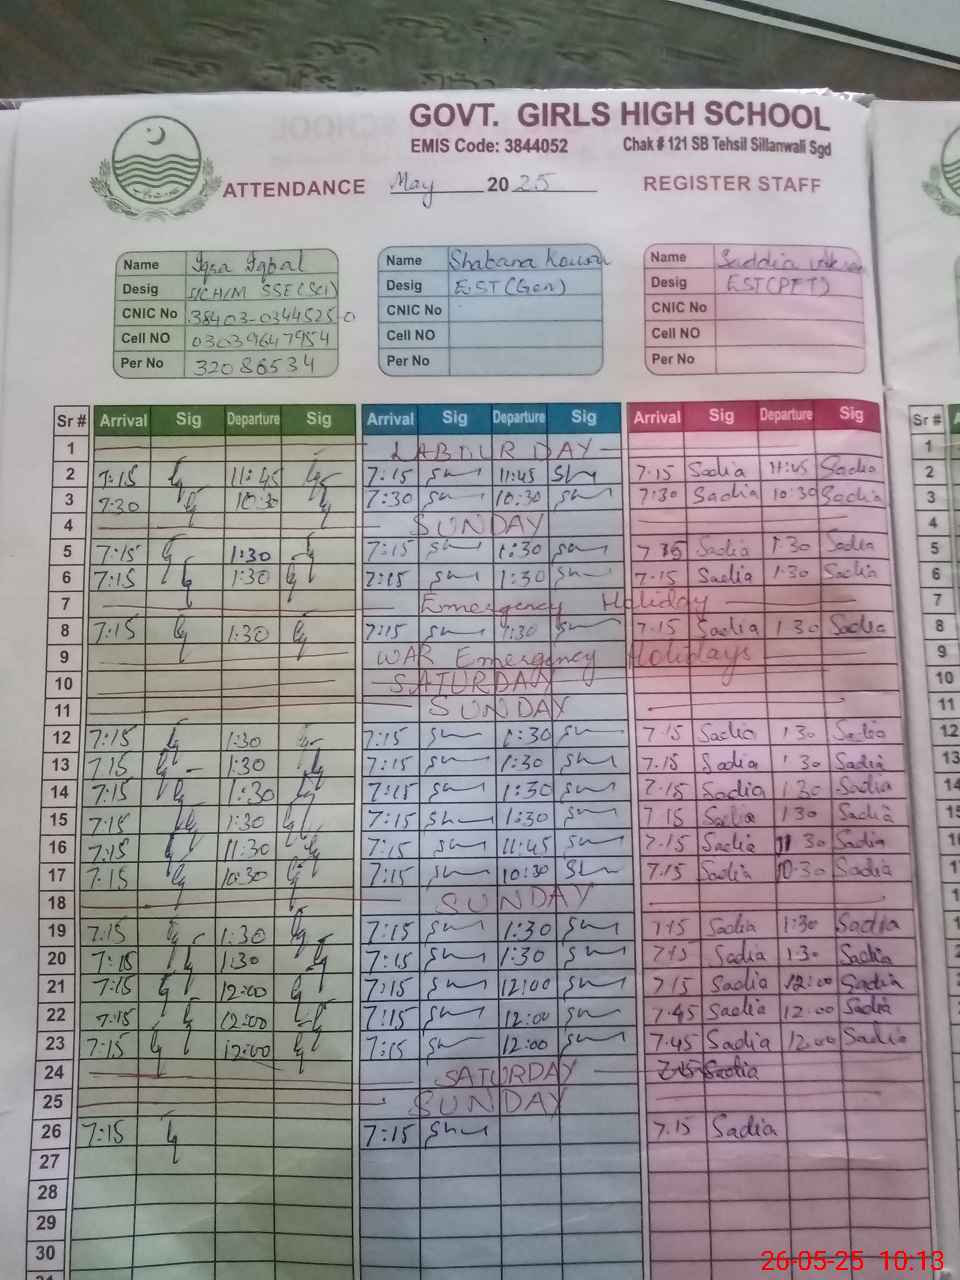 GOVT. GIRLS HIGH SCHOOL
EMIS Code: 3844052 Chak # 121 SB Tehsil Sillanwali Sgd
ATTENDANCE May 2025 REGISTER STAFF
Name Iqsa Iqbal Name Shabana Name Saddia
Desig SSE(Sci) Desig EST(Gen) Desig EST
CNIC No 38403-0344525-0 CNIC No CNIC No
Cell NO 03039647954 Cell NO Cell NO
Per No 32086534 Per No Per No
Sr # Arrival Sig Departure Sig Arrival Sig Departure Sig Arrival Sig Departure Sig Sr #
1 LABOUR DAY 1
2 7:15 11:45 7:15 11:45 7.15 Sadia 11:45 Sadia 2
3 7:30 10:30 7:30 10:30 7:30 Sadia 10:30 Sadia 3
4 SUNDAY 4
5 7:15 1:30 7:15 1:30 Sadia 1.30 Sadia 5
6 7:15 1:30 7:15 1:30 7.15 Sadia 1.30 Sadia 6
7 Emergency Holiday 7
8 7:15 1:30 7:15 1:30 7.15 Sadia 1 30 Sadia 8
9 WAR Emergency Holidays 9
10 SATURDAY 10
11 SUNDAY 11
12 7:15 1:30 7:15 1:30 7 15 Sadia 1 30 Sadia 12
13 7.15 1:30 7:15 1:30 7.15 Sadia 1 30 Sadia 13
14 7:15 1:30 7:15 1:30 7.15 Sadia 1 30 Sadia 14
15 7:15 1:30 7:15 1:30 7 15 Sadia 1 30 Sadia 15
16 7:15 11:30 7:15 11:45 7.15 Sadia 11 30 Sadia
17 7:15 10:30 7:15 10:30 7.15 Sadia 10.30 Sadia
18 SUNDAY
19 7:15 1:30 7:15 1:30 7.15 Sadia 1:30 Sadia
20 7:15 1:30 7:15 1:30 7.15 Sadia 1:30 Sadia
21 7:15 12:00 7:15 12:00 7.15 Sadia 12:00 Sadia
22 7:15 12:00 7:15 12:00 7.45 Sadia 12:00 Sadia
23 7:15 12:00 7:15 12:00 7.45 Sadia 12:00 Sadia
24 SATURDAY Sadia
25 SUNDAY
26 7:15 7:15 7.15 Sadia
27
28
29
30
26-05-25 10:13